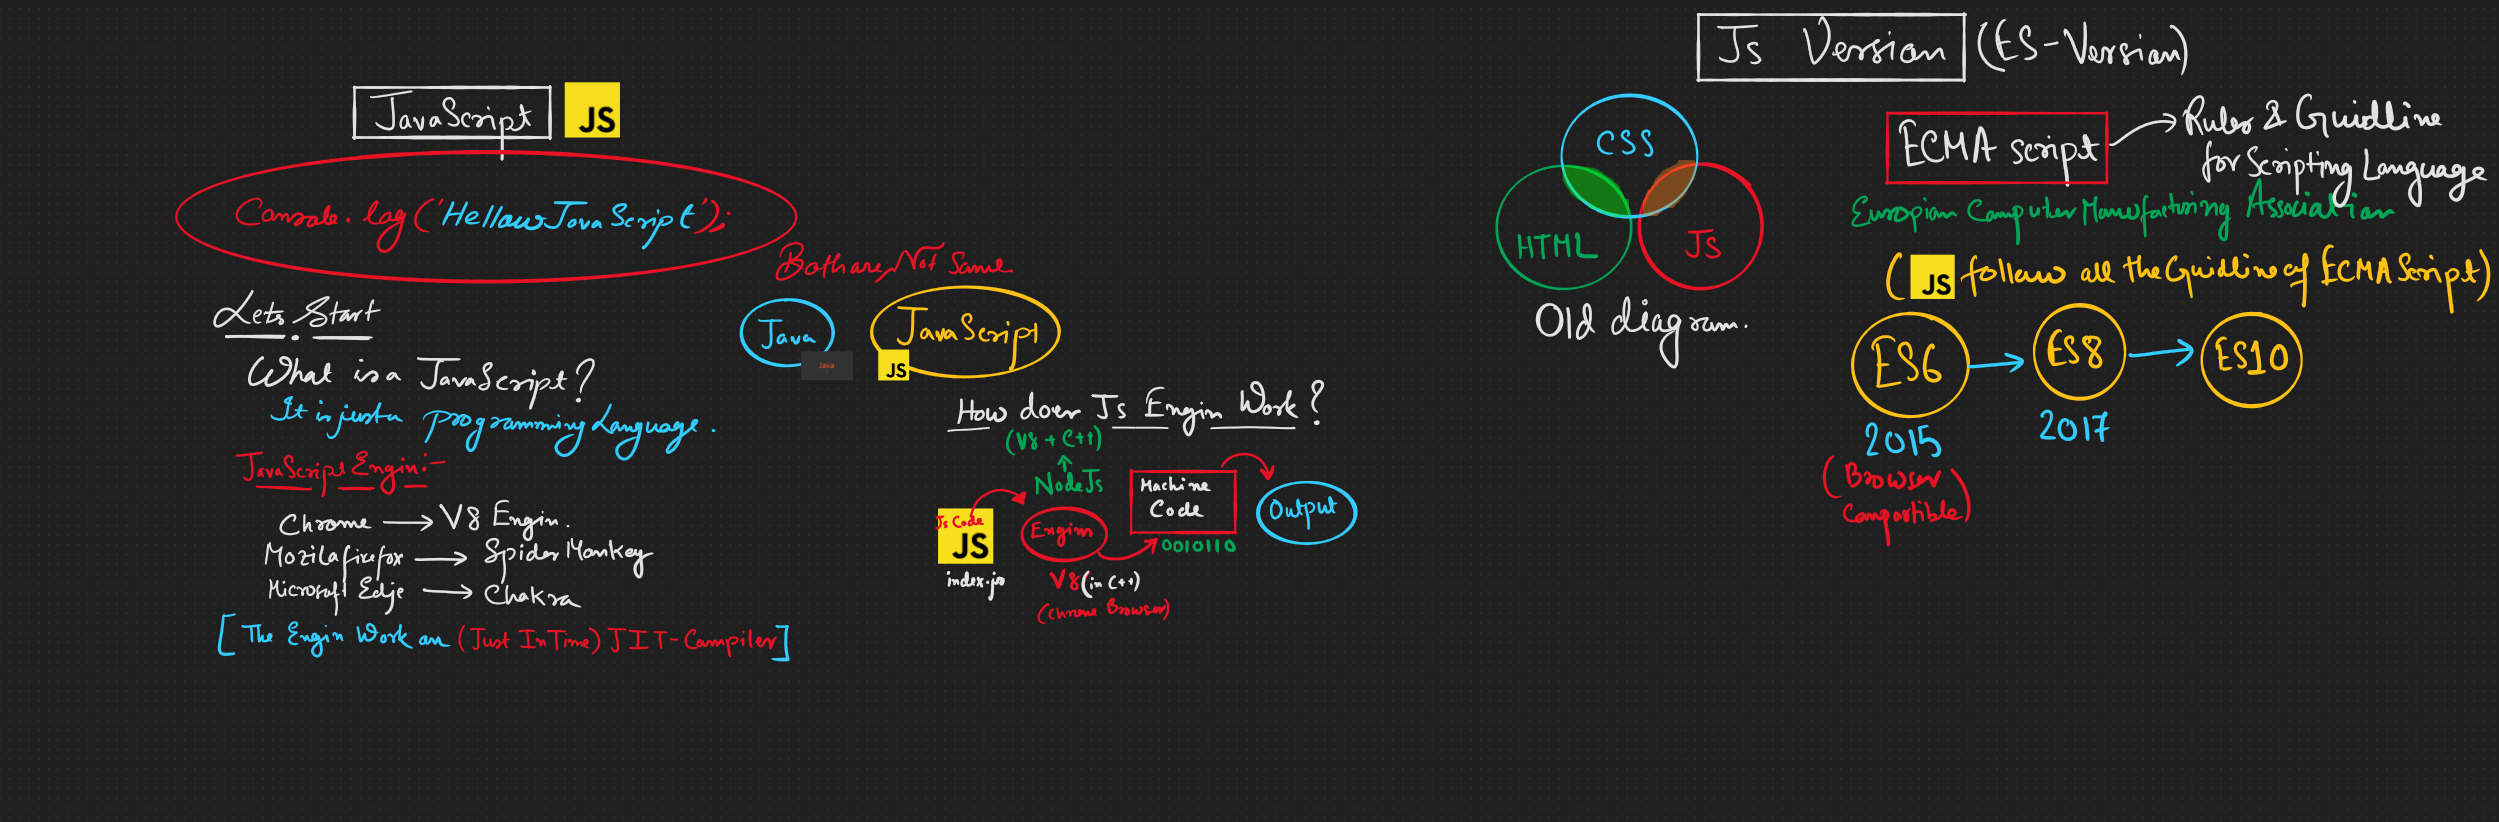 JavaScript
JS
Console.log('Hellow JavaScript');
Both are Not Same
Java
Java
JavaScript
JS
Lets Start
What is a JavaScript?
It is just a Programming Language.
JavaScript Engin:-
Chrome → V8 Engin.
Mozila firefox → Spider Monkey
Microsoft Edje → Chakra
[The Engin Work on (Just In Time) JIT-Compiler]
How does Js Engin Work?
(V8 + C++)
↑
NodeJs
Js Code
JS
index.js
Engin
V8 (in C++)
(chrome Browser)
Machine
Code
0010110
Output
CSS
HTML
JS
Old diagram.
Js Version (ES-Version)
ECMA script → Rules & Guidline
for Scripting Language
Europian Computer Manufacturing Association
(JS follow all the Guidline of ECMA Script)
ES6 → ES8 → ES10
2015
2017
(Browser
Compartible)